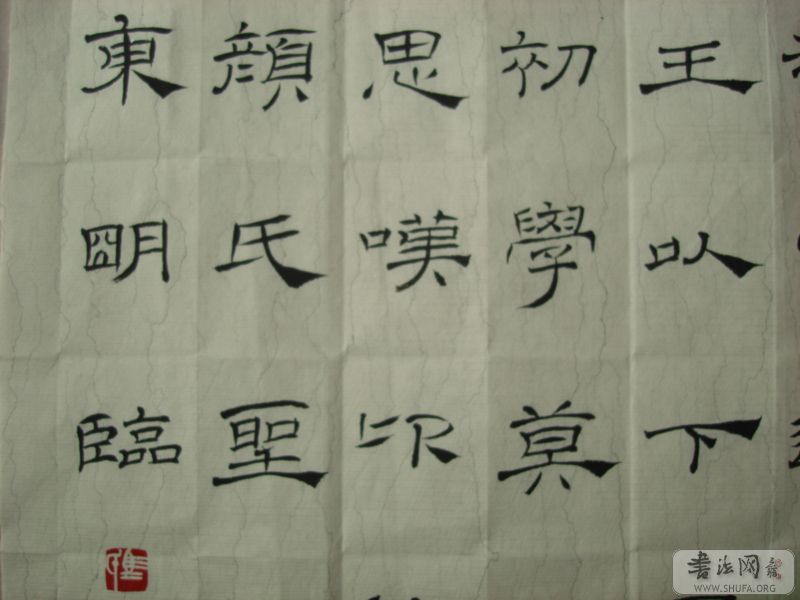 王以下
初學莫
思嘆卬
顏氏聖
東朙臨
書法网
WWW.SHUFA.ORG